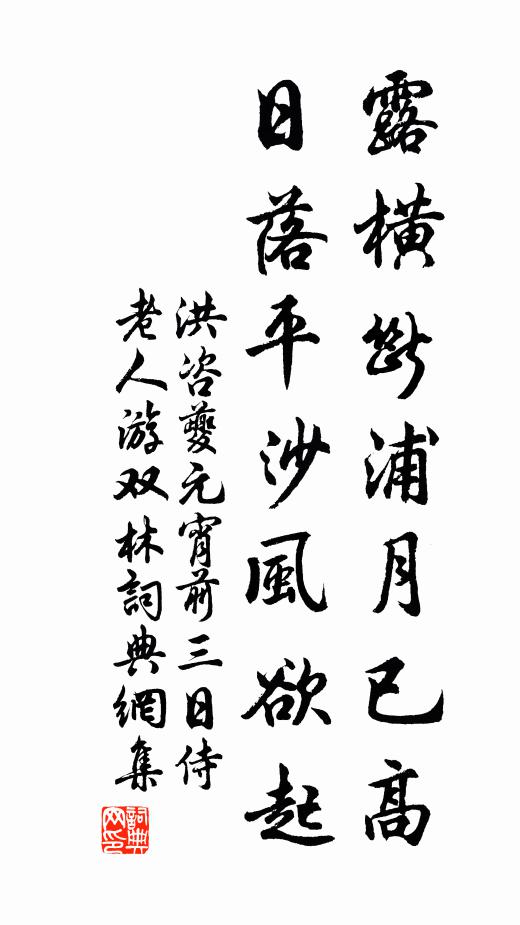 露橫斷浦月已高
日落平沙風欲起
洪咨夔元宵前三日侍
老人游双林詞典網集
詞典
网印